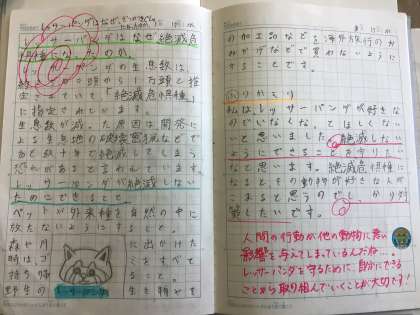 レッサーパンダはなぜ絶滅
レッサーパンダの生息数は、
頭から1万頭と推
定されていて「絶滅危惧種」
に指定されています。
生息数が減った原因は開発に
よる生息地の
あと数十 絶滅してしまう
恐れがあると言われています。
レッサーパンダが絶滅しない
ためにできること
ペットが外来種を自然の中に
放たないようにすること。
森や 出かけた
時はゴ ミをすべて
持ち帰 ること。
野生の 生き物や
レッサーパンダ
の加工品などを海外旅行のお
みやげなどで買わないように
することです。
ふりかえり
私は、レッサーパンダが好きな
のでいなくなってほしくな
いと思いました。絶滅しない
ようにできることを守りたい
なと思います。絶滅危惧種に
なるとその動物が好きな人が
こまると思うので、
したいです。
人間の行動が他の動物に悪い
影響を与えてしまっているんだね…。
レッサーパンダを守るために、自分にできる
ことから取り組んでいくことが大切です!